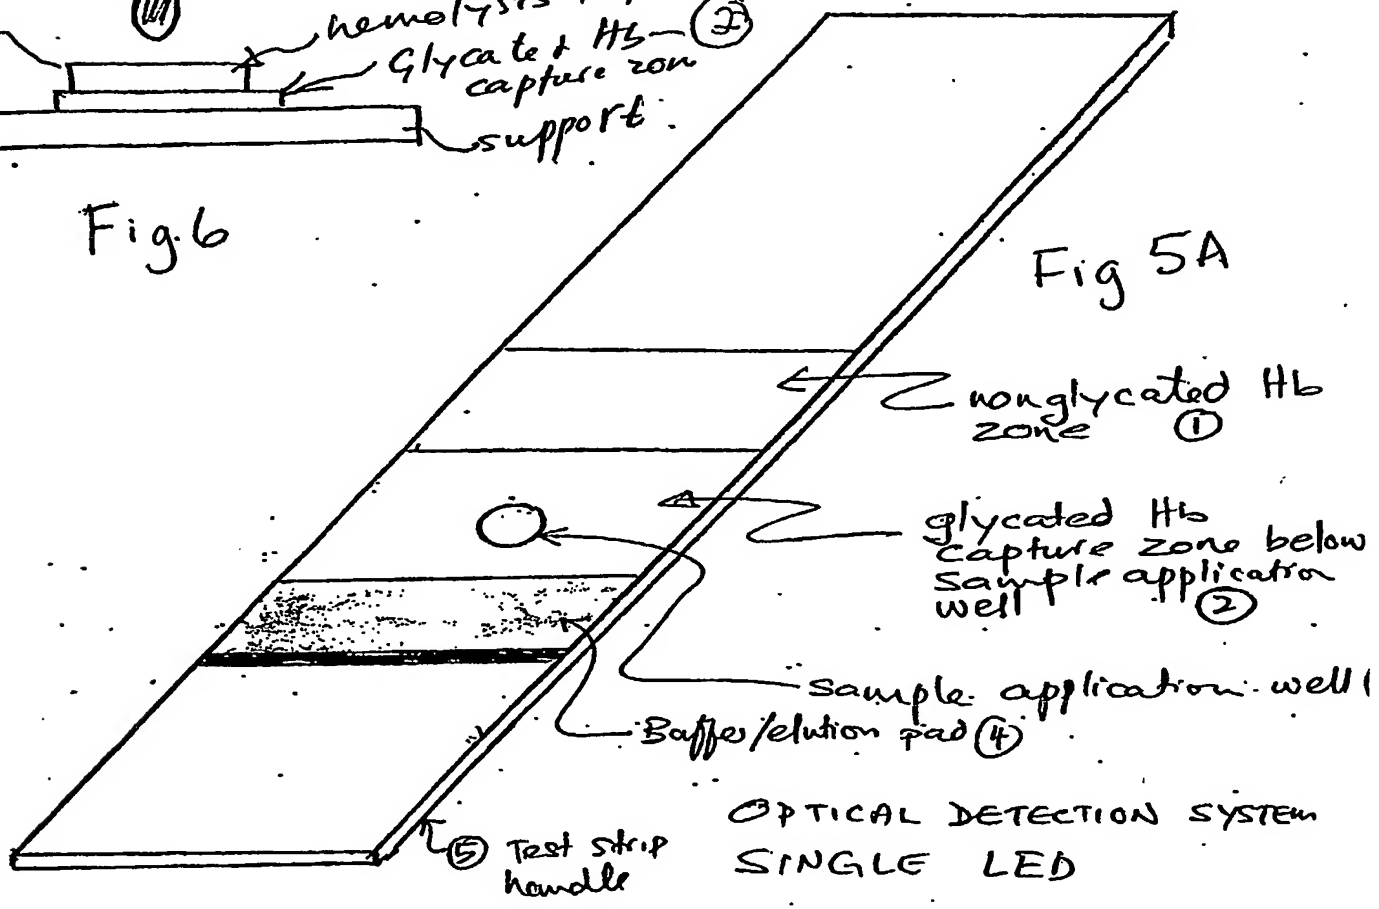 hemolysis
Glycated Hb ②
capture zon
support
Fig. 6
Fig 5A
nonglycated Hb
zone ①
glycated Hb
capture zone below
sample application
well ②
sample application well
Buffer/elution pad ④
⑤ Test strip
handle
OPTICAL DETECTION SYSTEM
SINGLE LED